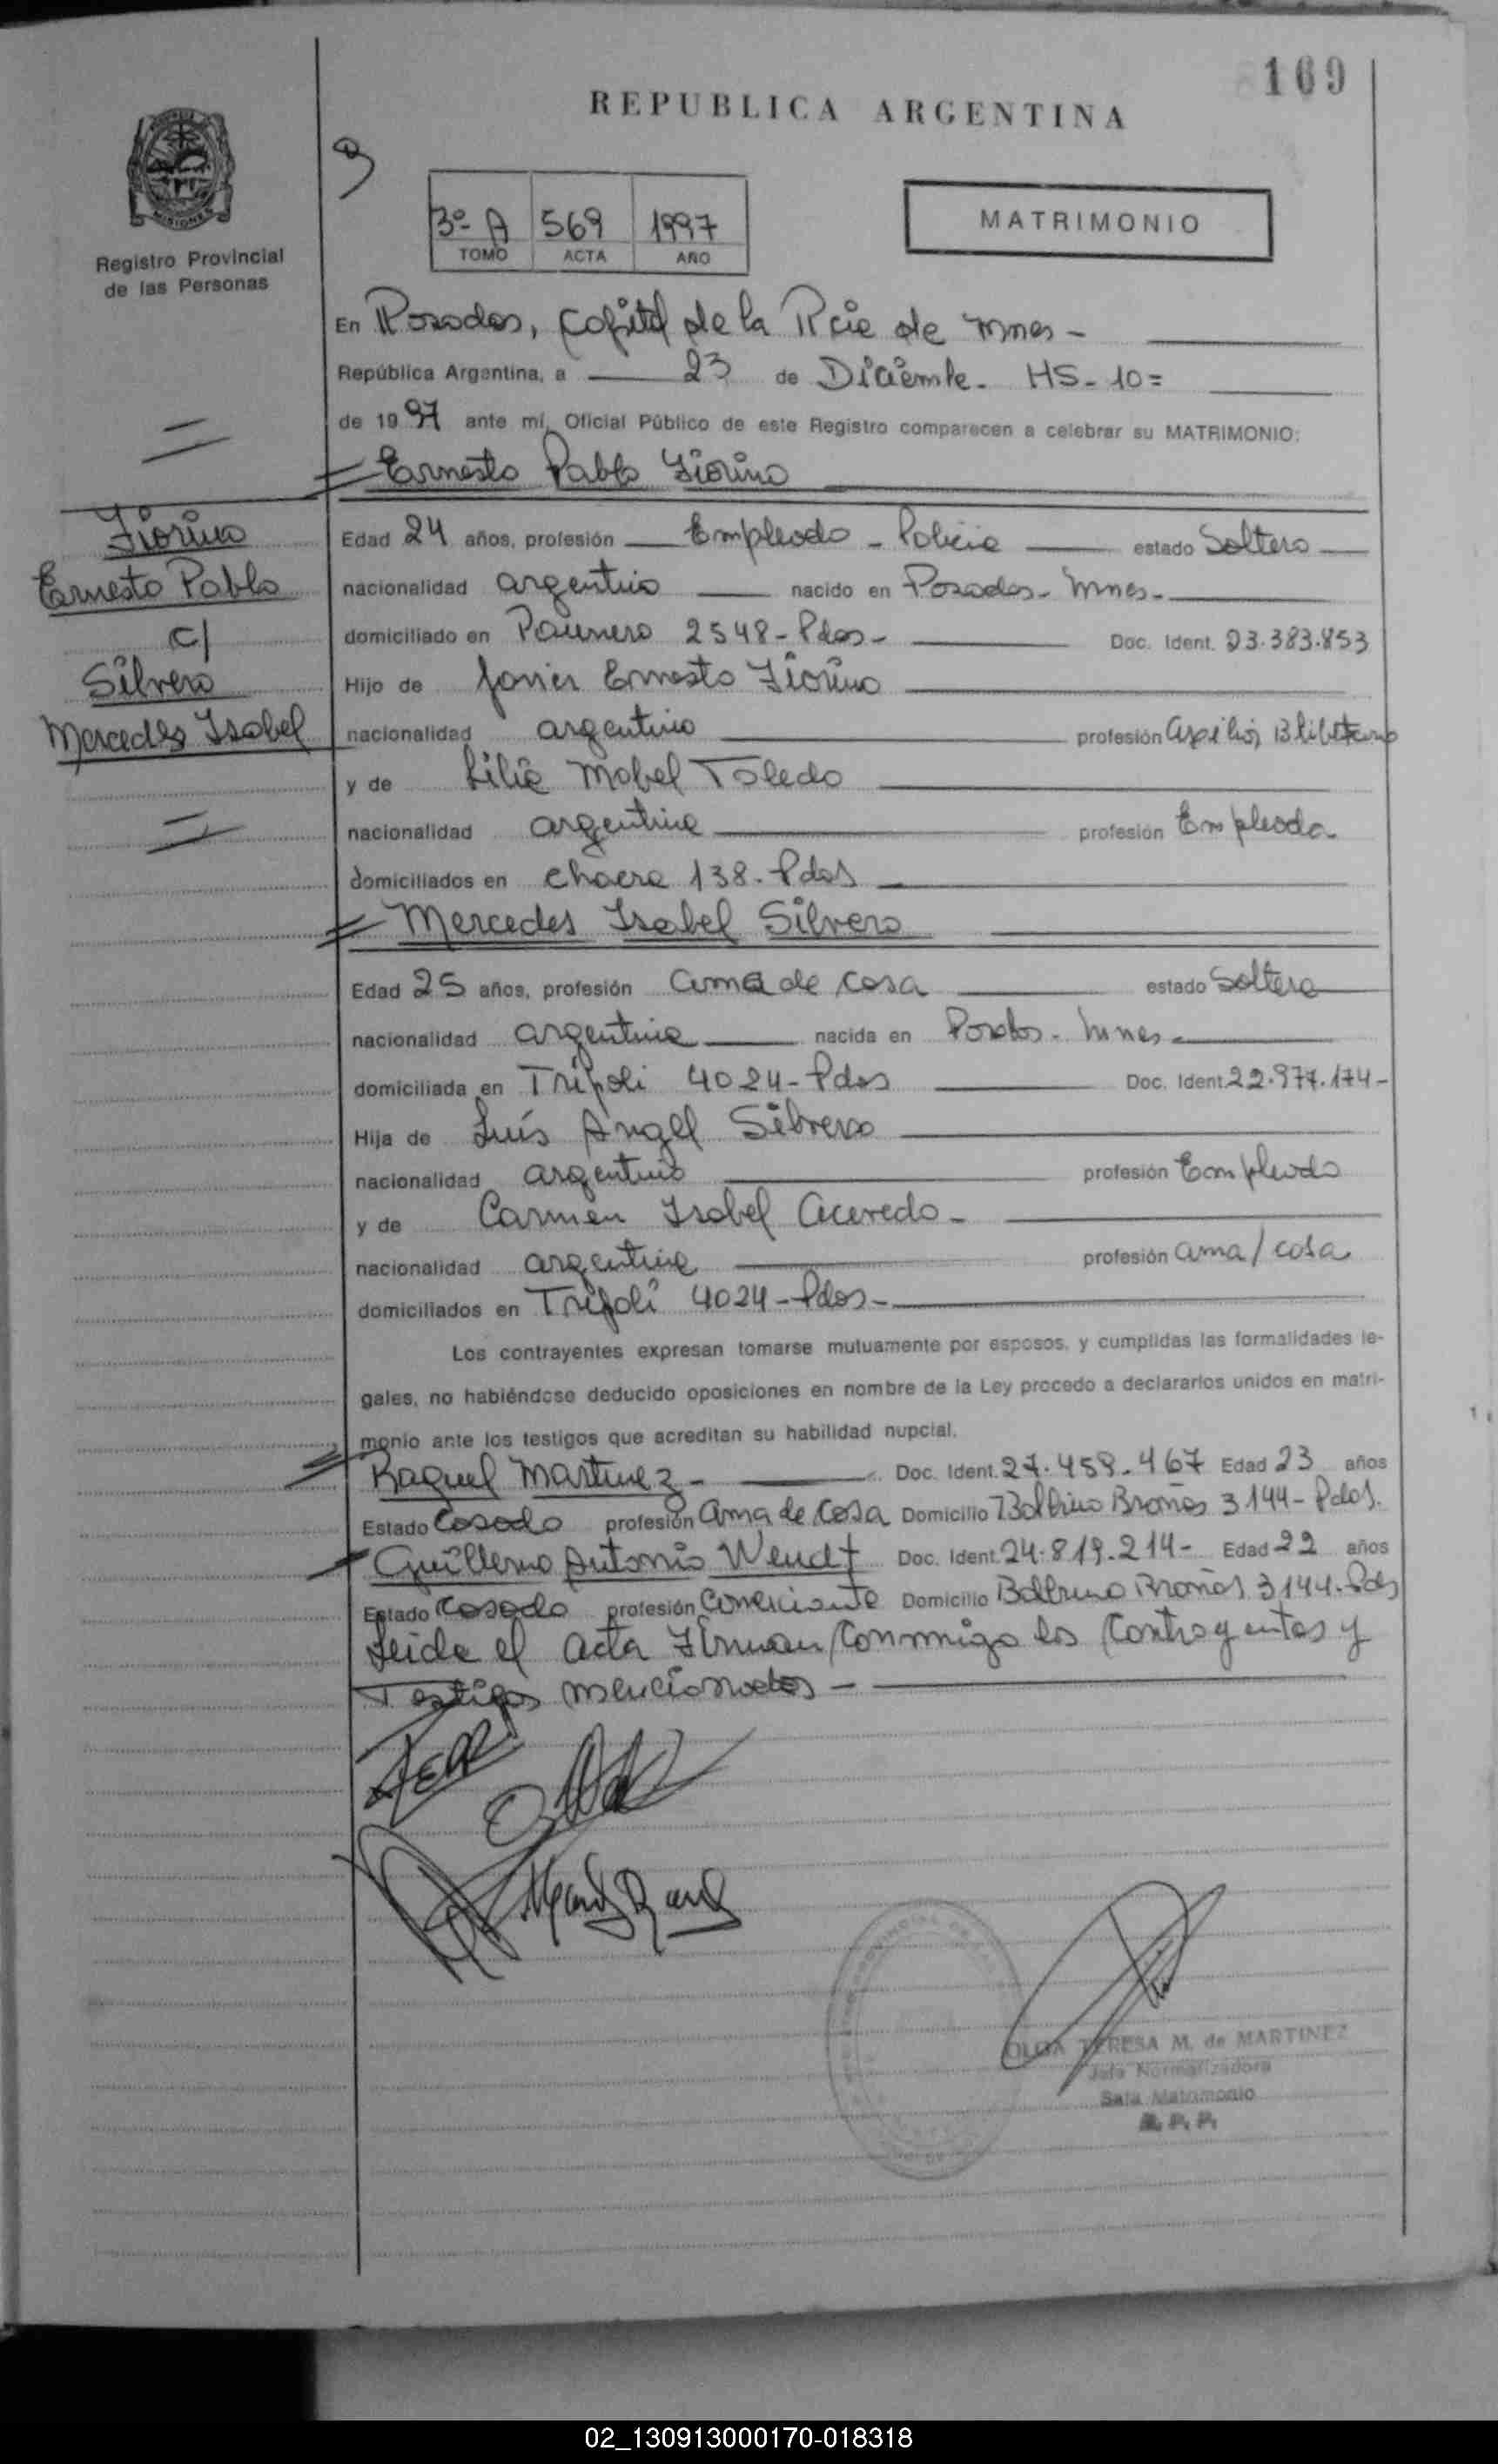 169
REPUBLICA ARGENTINA
MISIONES
Registro Provincial
de las Personas
3º A 569 1997
TOMO ACTA AÑO
MATRIMONIO
En Posadas, Capital de la Pcia de Mnes -
República Argentina, a 23 de Diciembre. HS- 10=
de 1997 ante mí, Oficial Público de este Registro comparecen a celebrar su MATRIMONIO:
Ernesto Pablo Fiorino
Fiorino
Ernesto Pablo
c/
Silvero
Mercedes Isabel
Edad 24 años, profesión Empleado - Policia estado Soltero
nacionalidad argentino nacido en Posadas - Mnes -
domiciliado en Paunero 2548 - Pdas - Doc. Ident. 23.383.853
Hijo de Javier Ernesto Fiorino
nacionalidad argentino profesión
y de Lilia Mabel Toledo
nacionalidad argentina profesión Empleada
domiciliados en Chacra 138 - Pdas
Mercedes Isabel Silvero
Edad 25 años, profesión ama de casa estado Soltera
nacionalidad argentina nacida en Posadas - Mnes -
domiciliada en Trípoli 4024 - Pdas Doc. Ident. 22.977.174 -
Hija de Luís Angel Silvero
nacionalidad argentino profesión Empleado
y de Carmen Isabel Acevedo -
nacionalidad argentina profesión ama/casa
domiciliados en Trípoli 4024 - Pdas -
Los contrayentes expresan tomarse mutuamente por esposos, y cumplidas las formalidades le-
gales, no habiéndose deducido oposiciones en nombre de la Ley procedo a declararlos unidos en matri-
monio ante los testigos que acreditan su habilidad nupcial.
Raquel Martinez - Doc. Ident. 27.459.467 Edad 23 años
Estado Casada profesión ama de casa Domicilio Balbino Brañas 3144 - Pdas.
Guillermo Antonio Wendt Doc. Ident. 24.819.214 - Edad 22 años
Estado Casado profesión Comerciante Domicilio Balbino Brañas 3144 - Pdas
Leida el acta Firman Conmigo los Contrayentes y
Testigos mencionados -
OLGA TERESA M. de MARTINEZ
Jefa Normalizadora
Sala Matrimonio
R. P. P.
02_130913000170-018318